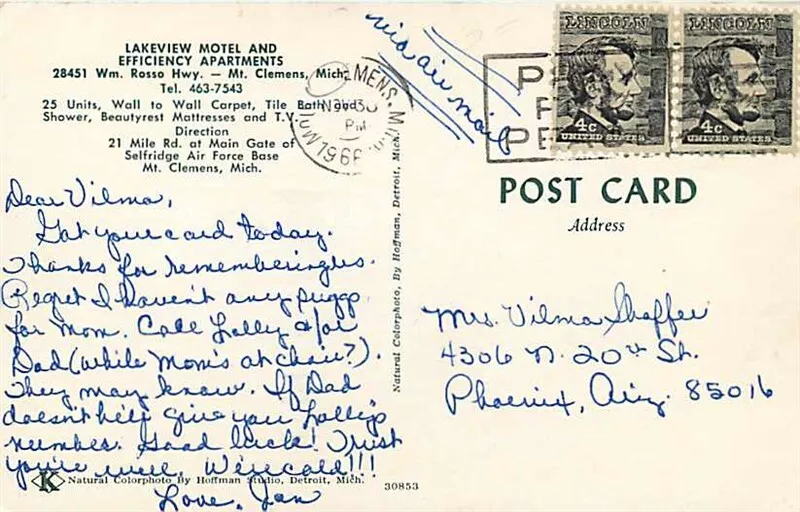 LAKEVIEW MOTEL AND
EFFICIENCY APARTMENTS
28451 Wm. Rosso Hwy. — Mt. Clemens, Mich.
Tel. 463-7543
25 Units, Wall to Wall Carpet, Tile Bath and
Shower, Beautyrest Mattresses and T.V.
Direction
21 Mile Rd. at Main Gate of
Selfridge Air Force Base
Mt. Clemens, Mich.
MENS. MICH.
NOV 30
PM
1966
via air mail
P
F
PE
LINCOLN
4c
UNITED STATES
LINCOLN
4c
UNITED STATES
POST CARD
Address
Dear Vilma,
Got your card today.
Thanks for remembering us.
Regret I haven't any
for Mom. Call Lolly &/or
Dad (while Mom's at choir?).
They may know. If Dad
doesn't help give you Lolly's
number. Good luck! Trust
you're well. We're cold!!!
Love, Jan
Mrs. Vilma Shaffer
4306 N. 20th St.
Phoenix, Ariz. 85016
Natural Colorphoto, By Hoffman, Detroit, Mich.
K
Natural Colorphoto By Hoffman Studio, Detroit, Mich.
30853